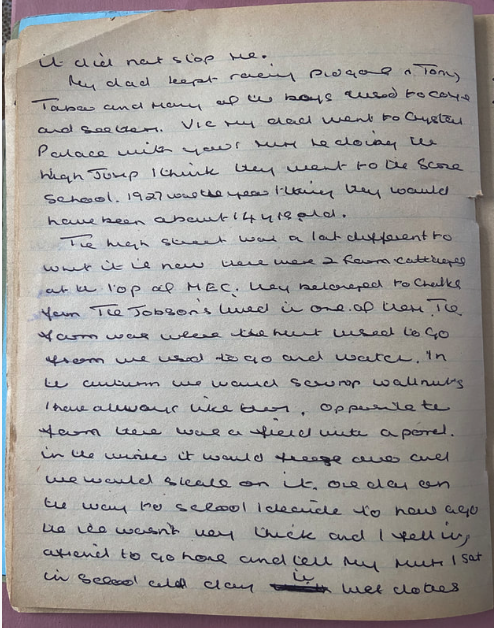 it did not stop me.
My dad kept racing pidgons n Tony
Taba and many of the boys used to come
and see them. Vic my dad went to Crystal
Palace with your Mum he doing the
high Jump I think they went to the same
School. 1927 was the year I think they would
have been about 14 yrs old.
The high street was a lot different to
what it is now there were 2 farm cottages
at the top of MEC. they belonged to Chalks
farm The Jobson's lived in one of them. The
farm was where the hunt used to go
from we used to go and watch. In
the autumn we would scrump wallnuts
I have allways like them. Opposite the
farm there was a field with a pond.
in the winter it would freeze over and
we would skate on it. one day on
the way to school I decide to have a go
the ice wasn't very thick and I fell in,
afraid to go home and tell my Mum I sat
in School all day in wet clothes